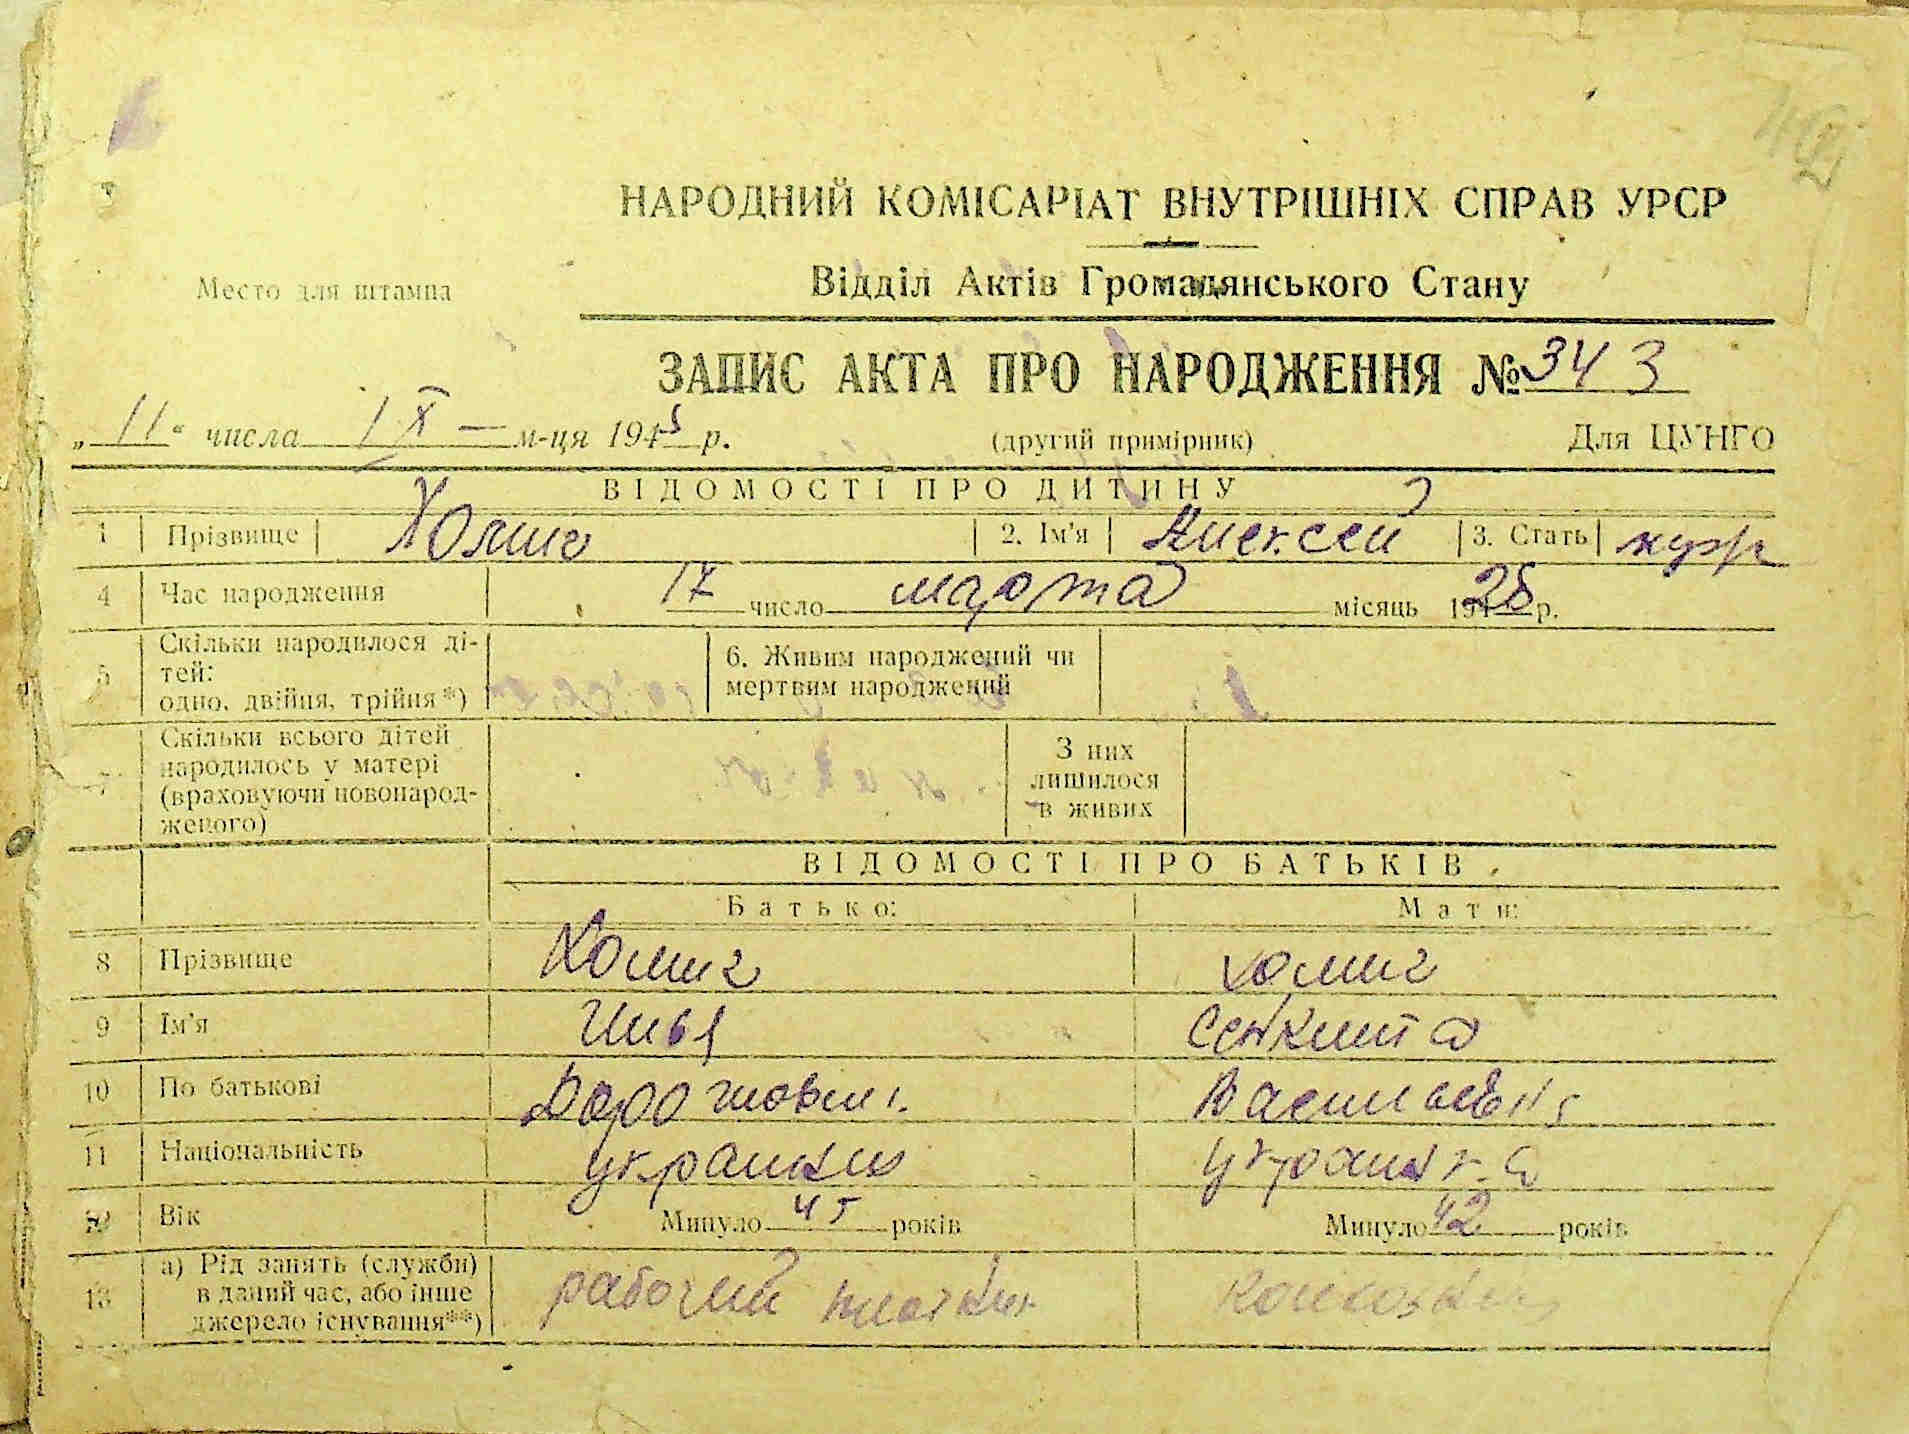 НАРОДНИЙ КОМІСАРІАТ ВНУТРІШНІХ СПРАВ УРСР
Место для штампа
Відділ Актів Громадянського Стану
ЗАПИС АКТА ПРО НАРОДЖЕННЯ № 343
„11“ числа IX — м-ця 1945 р. (другий примірник) Для ЦУНГО
ВІДОМОСТІ ПРО ДИТИНУ
1 Прізвище 2. Ім'я Алексей 3. Стать муж
4 Час народження 17 число марта місяць 1928 р.
5 Скільки народилося ді-
тей:
одно, двійня, трійня*)
6. Живим народжений чи
мертвим народжений
7 Скільки всього дітей
народилось у матері
(враховуючи новонарод-
женого)
З них
лишилося
в живих
ВІДОМОСТІ ПРО БАТЬКІВ
Батько: Мати:
8 Прізвище Хомиг Хомиг
9 Ім'я Илья
10 По батькові
11 Національність украинец украинка
12 Вік Минуло 45 років Минуло 42 років
13 а) Рід занять (служби)
в даний час, або інше
джерело існування**)
рабочий